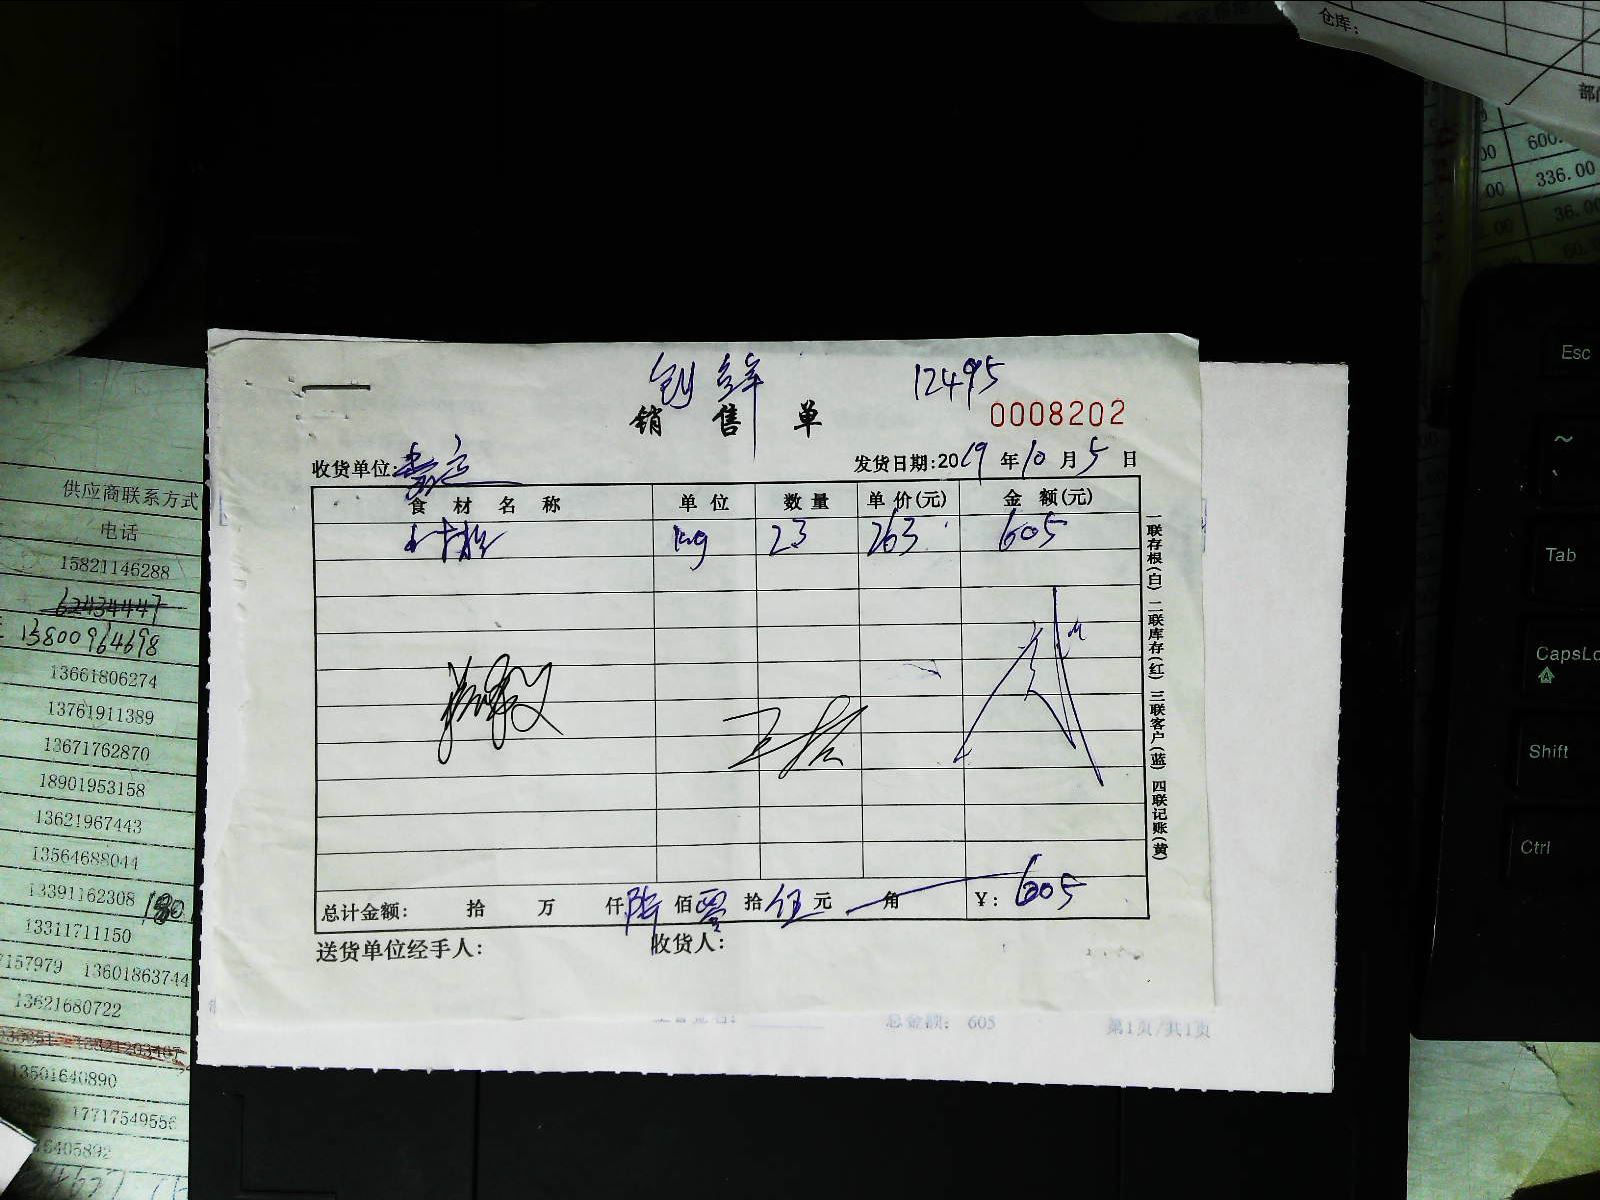 仓库:
部门
600.
00
336.00
00
36.00
.00
60.
12495
销 售 单
0008202
收货单位:
发货日期:2019 年 10 月 5 日
食 材 名 称 单 位 数 量 单 价(元) 金 额(元)
kg 23 263 605
一联存根(白) 二联库存(红) 三联客户(蓝) 四联记账(黄)
总计金额: 拾 万 仟 陆 佰 零 拾 伍 元 角 ¥: 605
送货单位经手人: 收货人:
总金额: 605 第1页/共1页
供应商联系方式
电话
15821146288
62434447
13800964698
13661806274
13761911389
13671762870
18901953158
13621967443
13564688044
13391162308
13311711150
7157979 13601863744
13621680722
13501640890
17717549556
Esc
~
Tab
CapsLo
Shift
Ctrl